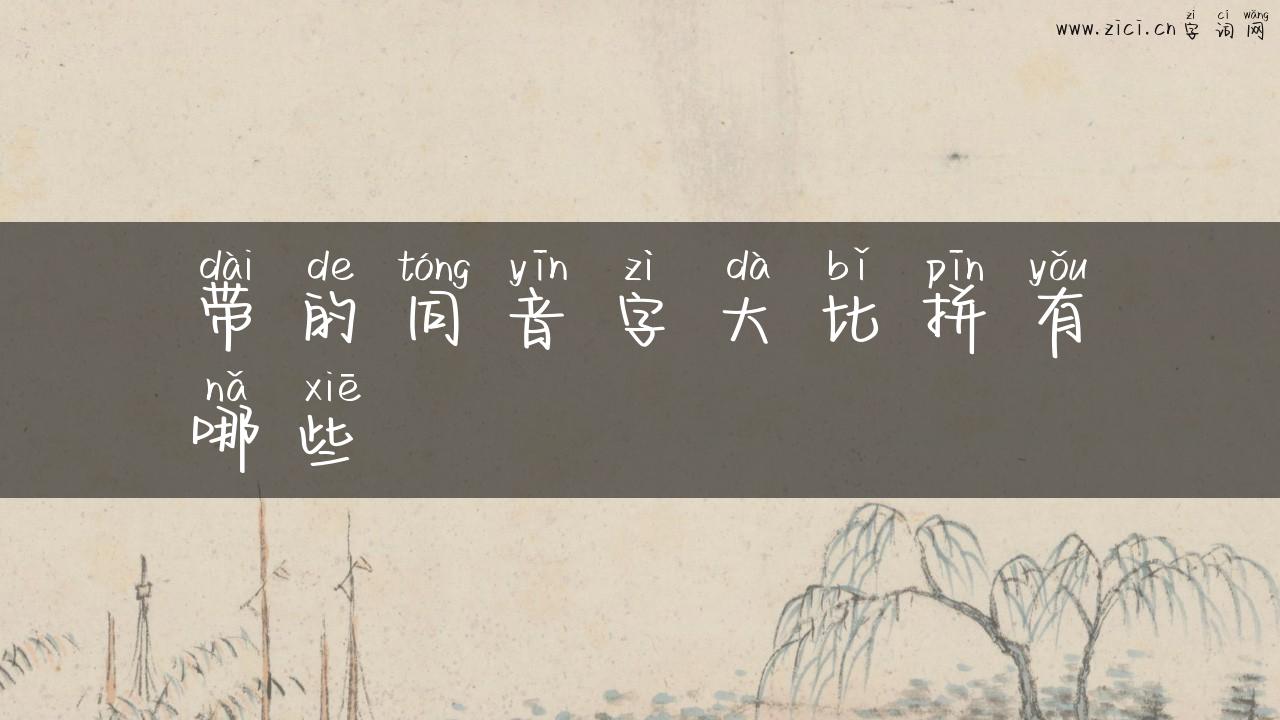 zì cí wǎng
www.zici.cn 字 词 网
dài de tóng yīn zì dà bǐ pīn yǒu
带 的 同 音 字 大 比 拼 有
nǎ xiē
哪 些